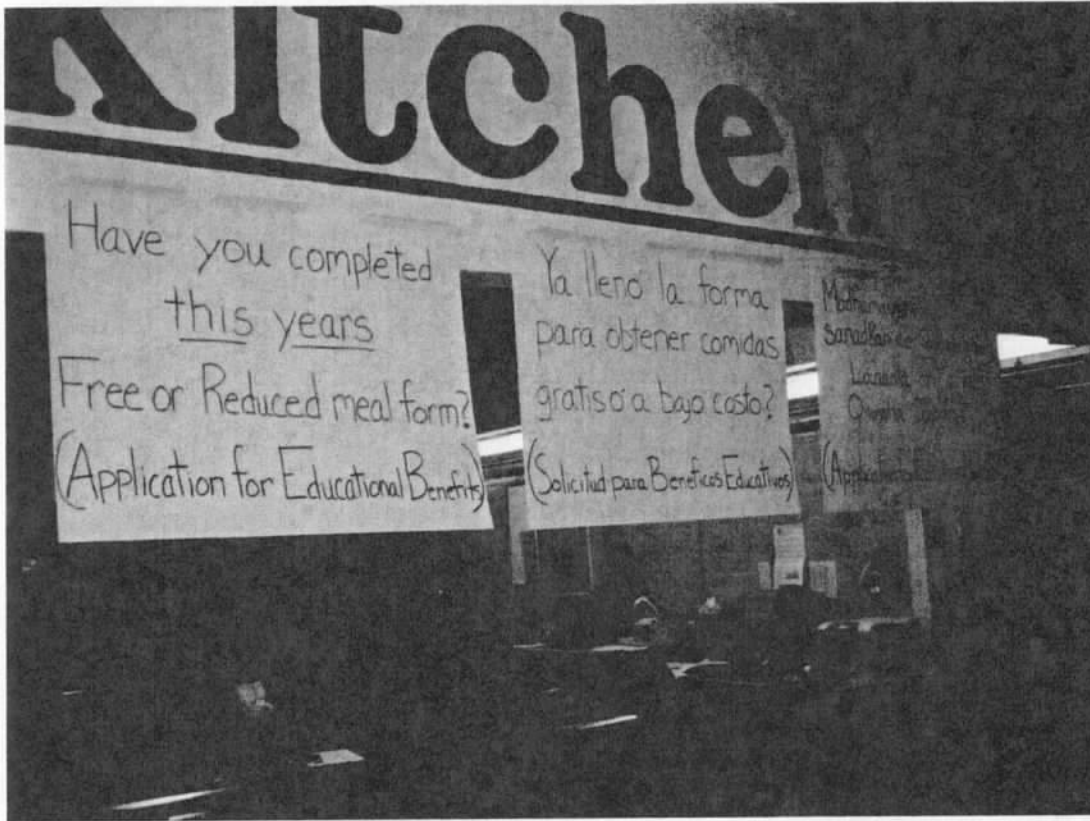 Kitchen
Have you completed
this years
Free or Reduced meal form?
(Application for Educational Benefits)
Ya llenó la forma
para obtener comidas
gratis o a bajo costo?
(Solicitud para Beneficos Educativos)
(Application